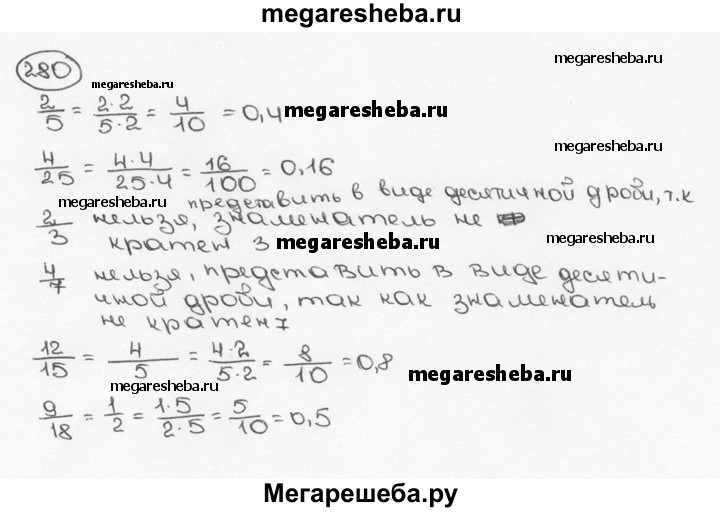 megaresheba.ru
280
megaresheba.ru
megaresheba.ru
2/5 = 2·2/5·2 = 4/10 = 0,4 megaresheba.ru
4/25 = 4·4/25·4 = 16/100 = 0,16
megaresheba.ru представить в виде десятичной дроби, т.к
2/3 нельзя, знаменатель не
кратен 3 megaresheba.ru megaresheba.ru
4/7 нельзя, представить в виде десяти-
чной дроби, так как знаменатель
не кратен 7
12/15 = 4/5 = 4·2/5·2 = 8/10 = 0,8 megaresheba.ru
megaresheba.ru
9/18 = 1/2 = 1·5/2·5 = 5/10 = 0,5
Мегарешеба.ру